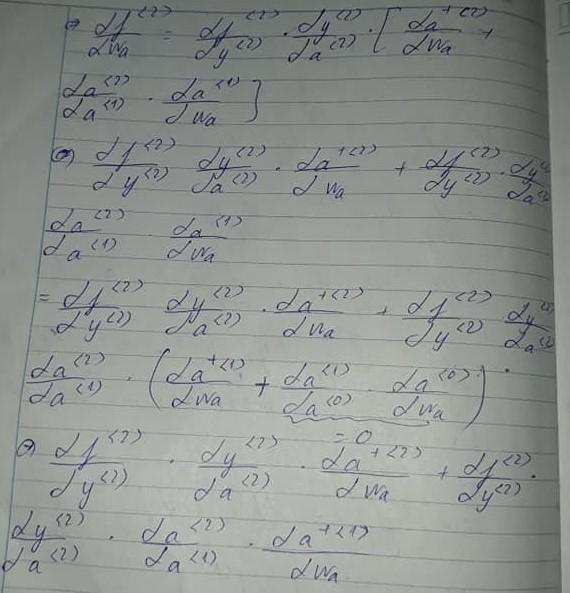 ⇒ dJ^<2>/dWa = dJ^<2>/dy^<2> · dy^<2>/da^<2> · [ da^+<2>/dWa +
da^<2>/da^<1> · da^<1>/dWa ]
⇒ dJ^<2>/dy^<2> dy^<2>/da^<2> · da^+<2>/dWa + dJ^<2>/dy^<2> · dy^<2>/da^<2>
da^<2>/da^<1> · da^<1>/dWa
= dJ^<2>/dy^<2> dy^<2>/da^<2> · da^+<2>/dWa + dJ^<2>/dy^<2> dy^<2>/da^<2> ·
da^<2>/da^<1> · ( da^+<1>/dWa + da^<1>/da^<0> · da^<0>/dWa )
= 0
⇒ dJ^<2>/dy^<2> · dy^<2>/da^<2> · da^+<2>/dWa + dJ^<2>/dy^<2> ·
dy^<2>/da^<2> · da^<2>/da^<1> · da^+<1>/dWa